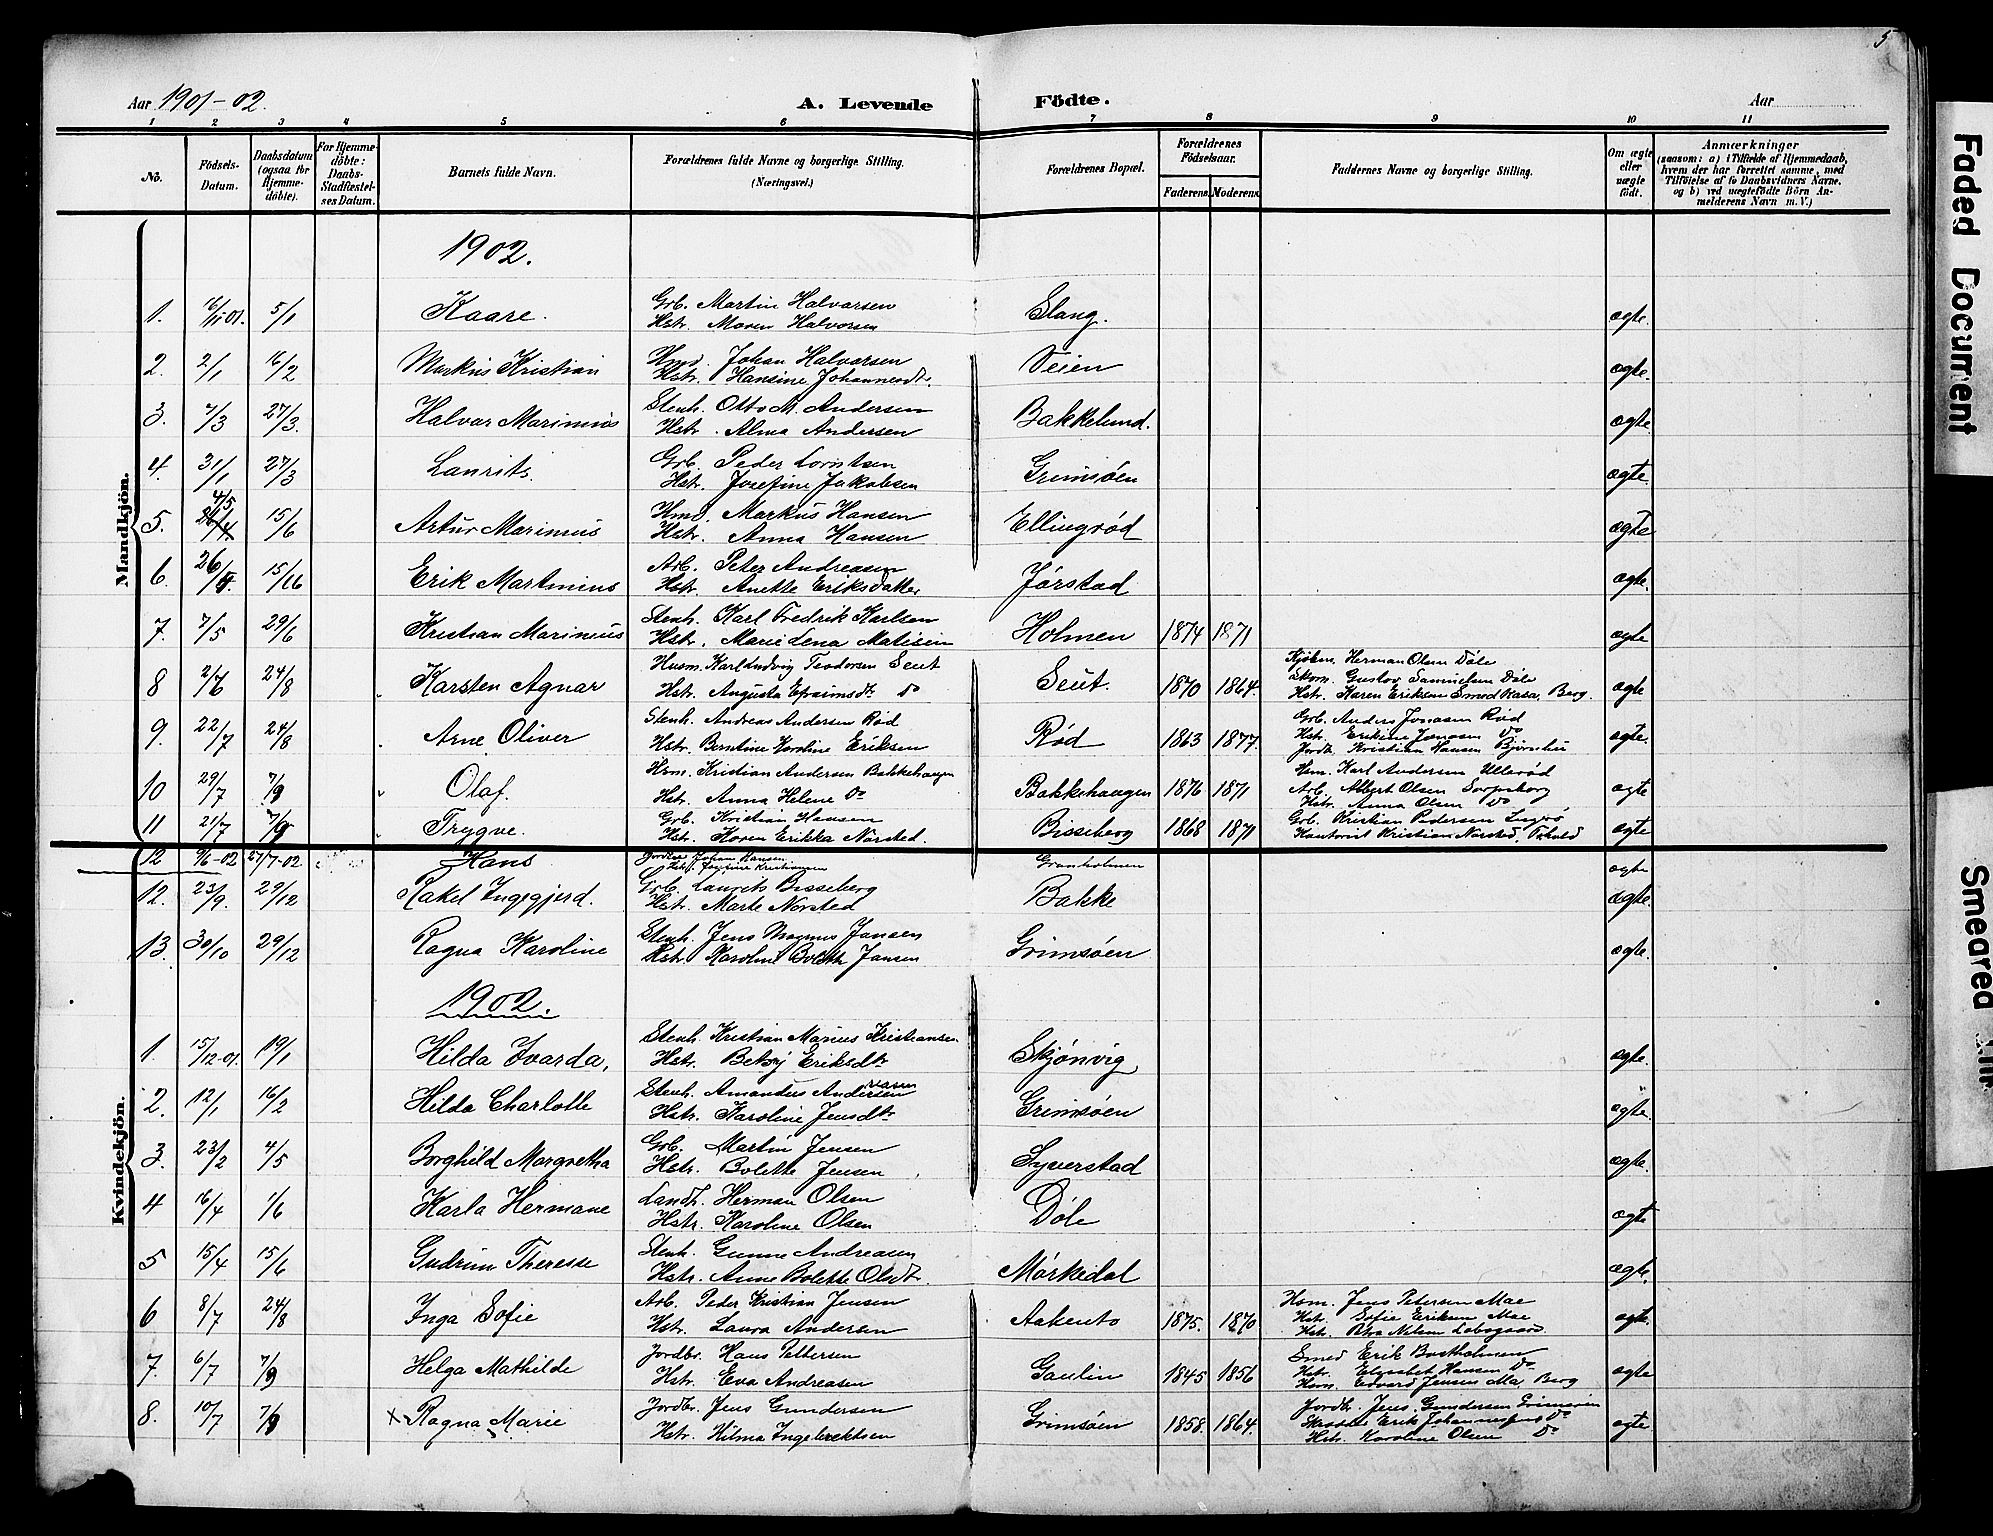 5
Aar 1901-02. A. Levende Födte. Aar
1 2 3 4 5 6 7 8 9 10 11
No. Födsels-Datum. Daabsdatum (ogsaa for Hjemme-döbte). For Hjemme-döbte: Daabs-Stadfæstel-ses Datum. Barnets fulde Navn. Forældrenes fulde Navne og borgerlige Stilling. (Næringsvei.) Forældrenes Bopæl. Forældrenes Födselsaar. Faderens. Moderens. Faddernes Navne og borgerlige Stilling. Om ægte eller uægte födt. Anmærkninger (saasom: a) i Tilfælde af Hjemmedaab, hvem der har forrettet samme, med Tilföielse af to Daabsvidners Navne, og b) ved uægtefödte Börn An-melderens Navn m. V.)
Mandkjön.
1902.
1. 16/11 01. 5/1 Kaare. Grb. Martin Halvorsen Slang. ægte.
Hstr. Maren Halvorsen
2. 2/1 16/2 Markus Kristian Hmd. Johan Halvorsen Veien ægte.
Hstr. Hansine Johannesdtr.
3. 7/3 27/3. Halvar Marinius Stenh. Otto M. Andersen Bakkelund. ægte.
Hstr. Alma Andersen
4. 31/1 27/3 Laurits. Grb. Peder Lorntsen Grimsøen ægte.
Hstr. Josefine Jakobsen
4/5
5. 26/4 15/6 Artur Marinius Hmd. Markus Hansen Ellingrød ægte
Hstr. Anna Hansen
6. 26/4. 15/16 Erik Martinius Arb. Peter Andreasen Jørstad ægte.
Hstr. Anette Eriksdatter
7. 7/5 29/6 Kristian Marinius Stenh. Karl Fredrik Karlsen Holmen 1874 1871 ægte
Hstr. Marie Lena Matisen
8 2/6 24/8 Karsten Agnar Husm. Karl Ludvig Teodorsen Seut Seut. 1870 1864. Kjøbm. Herman Olsen Døle ægte
Hstr. Augusta Efraimsdtr. Do Skom. Gustav Samuelsen Døle
Hstr. Karen Eriksen Smedkasa, Berg.
9. 22/7 24/8 Arne Oliver Stenh. Andreas Andersen Rød Rød 1863 1877. Grb. Anders Jonasen Rød ægte.
Hstr. Berntine Karoline Eriksen Hstr. Erikine Jonasen Do
Jordb. Kristian Hansen Bjørnhu
10 29/7 7/9 Olaf. Hsm. Kristian Andersen Bakkehaugen Bakkehaugen 1876 1871 Hsm. Karl Andersen Ullerød ægte
Hstr. Anna Helene Do Arb. Albert Olsen Sarpsborg
Hstr. Anna Olsen Do
11 21/7 7/9 Trygve. Grb. Kristian Hansen Bisseberg 1868 1871 Grb. Kristian Pedersen ægte
Hstr. Karen Erikka Norsted. Kristian Norsted,
12 9/6-02 27/7-02 Hans Johan Hansen Granholmen ægte
Josefine Kristiansen
12. 23/9. 29/12 Rakel Ingegjerd. Grb. Laurits Bisseberg Bakke ægte.
Hstr. Marte Norsted
13. 30/10 29/12 Ragna Karoline Stenh. Jens Magnus Jansen Grimsøen ægte.
Hstr. Karoline Bolette Jansen
1902.
Kvindekjön.
1. 15/12-01. 19/1 Hilda Ivarda, Stenh. Kristian Marius Kristiansen Skjønvig ægte.
Hstr. Betsy Eriksdtr
2. 12/1 16/2 Hilda Charlotte Stenh. Amandus Andersen Grimsøen ægte.
Hstr. Karoline Jensdtr
3. 23/2 4/5 Borghild Margretha Grb. Martin Jensen Syverstad ægte
Hstr. Bolette Jensen
4 16/4 1/6 Karla Hermane Landh. Herman Olsen Døle ægte
Hstr. Karoline Olsen
5 15/4 15/6 Gudrun Therese Stenh. Gunne Andreasen Mørkedal ægte.
Hstr. Anne Bolette Olsdtr.
6 8/7 24/8 Inga Sofie Arb. Peder Kristian Jensen Aakento 1875. 1870 Hsm. Jens Petersen Mae ægte.
Hstr. Laura Andersen Hstr. Sofie Eriksen Mae
Hstr. Petra Nilsen
7. 6/7 7/9 Helga Mathilde Jordbr. Hans Pettersen Gaulin 1845 1856 Smed Erik Bostholmen ægte
Hstr. Eva Andreasen Hstr. Elisabet Hansen Do
Hsm. Edvard Jensen Mae, Berg
8. 10/7 7/9 × Ragna Marie Jordbr. Jens Gundersen Grimsøen 1858. 1864. Jordbr. Jens Gundersen Grimsøen ægte.
Hstr. Hilma Ingebrektsen Erik Johannesen Do
Hstr. Karoline Olsen Do
Faded Document
Smeared